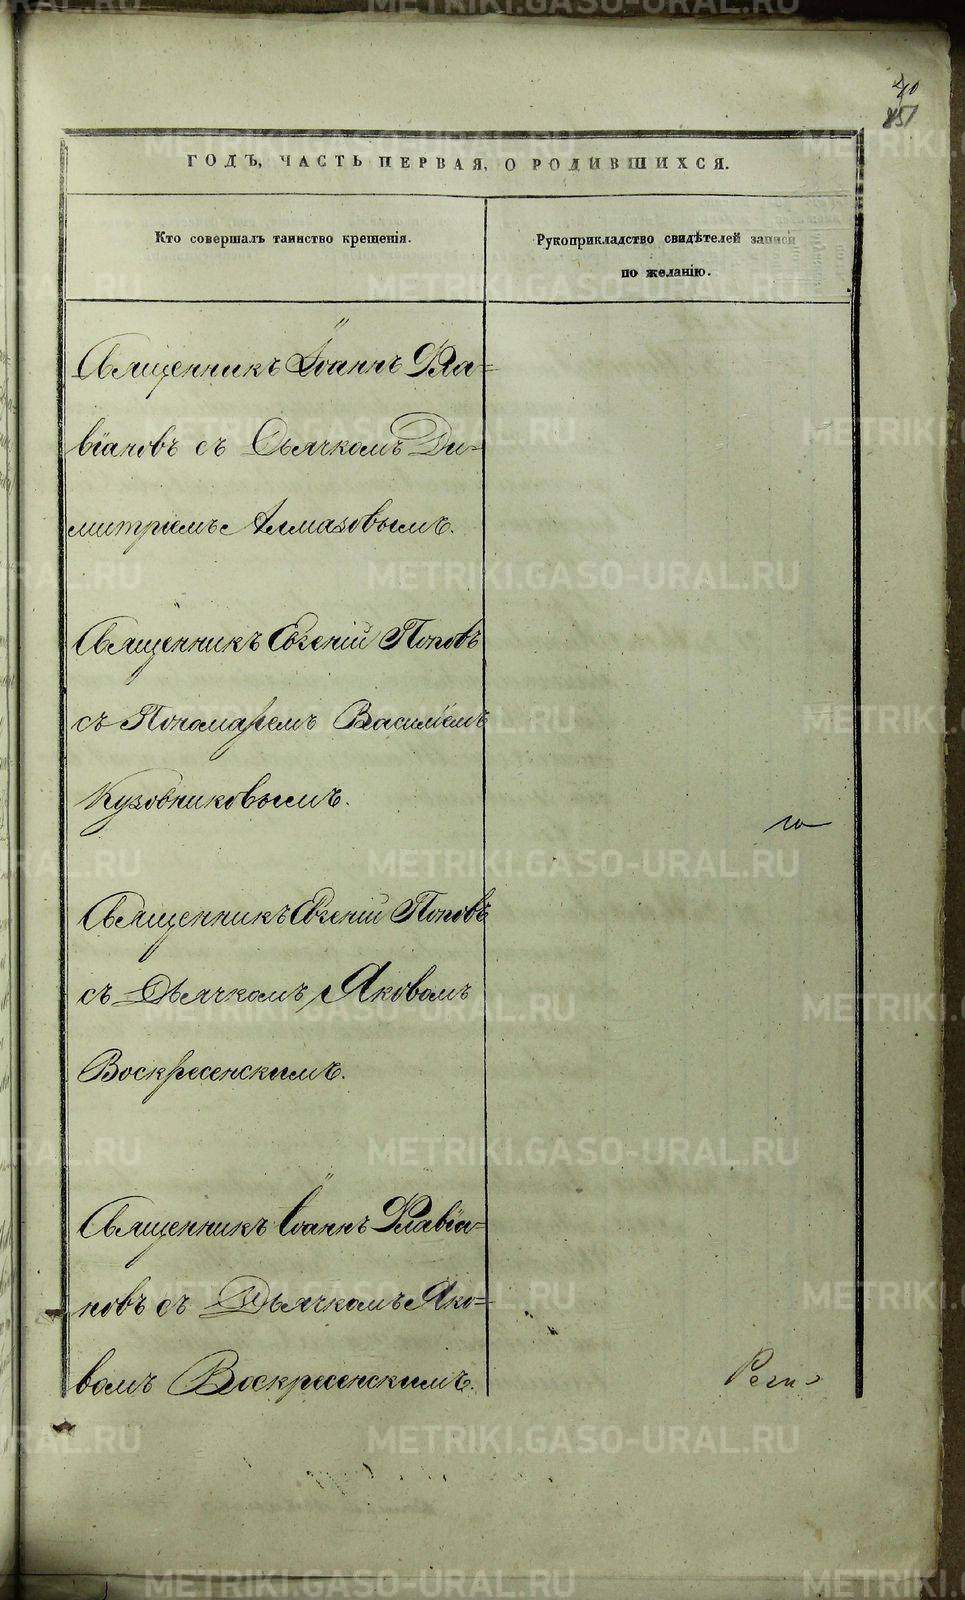 ГОДЪ, ЧАСТЬ ПЕРВАЯ, О РОДИВШИХСЯ.
Кто совершалъ таинство крещенія.
Рукоприкладство свидѣтелей записи
по желанію.
Священникъ Іоаннъ Фла-
віановъ съ Дьячкомъ Ди-
митріемъ Алмазовымъ.
Священникъ Евгеній Поповъ
съ Пономаремъ Василіемъ
Кузовниковымъ.
Священникъ Евгеній Поповъ
съ Дьячкомъ Яковомъ
Воскресенскимъ.
Священникъ Іоаннъ Флавіа-
новъ съ Дьячкомъ Яко-
вомъ Воскресенскимъ.
METRIKI.GASO-URAL.RU